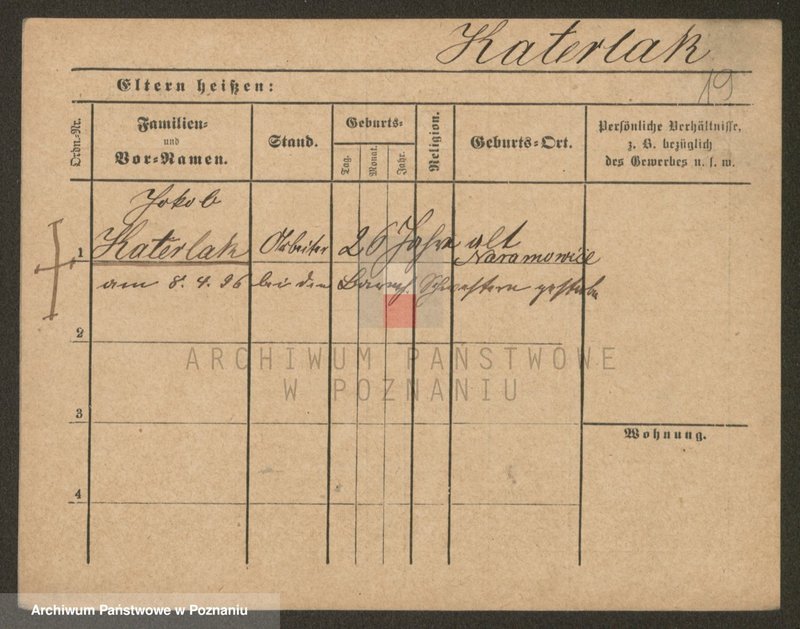 Katerlak
19
Eltern heißen:
Ordn.-Nr.
Familien-
und
Vor-Namen.
Stand.
Geburts-
Tag.
Monat.
Jahr.
Religion.
Geburts-Ort.
Persönliche Verhältnisse,
z. B. bezüglich
des Gewerbes u. s. w.
Jakob
1 Katerlak Arbeiter 26 Jahre alt
Naramowice
am 8. 4. 96 bei den Barmh. Schwestern gestorben
2
ARCHIWUM PAŃSTWOWE
W POZNANIU
3
Wohnung.
4
Archiwum Państwowe w Poznaniu